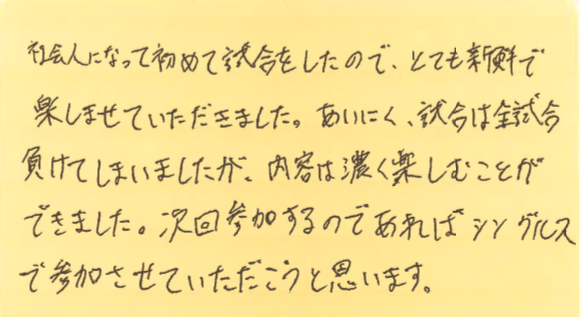 社会人になって初めて試合をしたので、とても新鮮で
楽しませていただきました。あいにく、試合は全試合
負けてしまいましたが、内容は濃く楽しむことが
できました。次回参加するのであればシングルス
で参加させていただこうと思います。